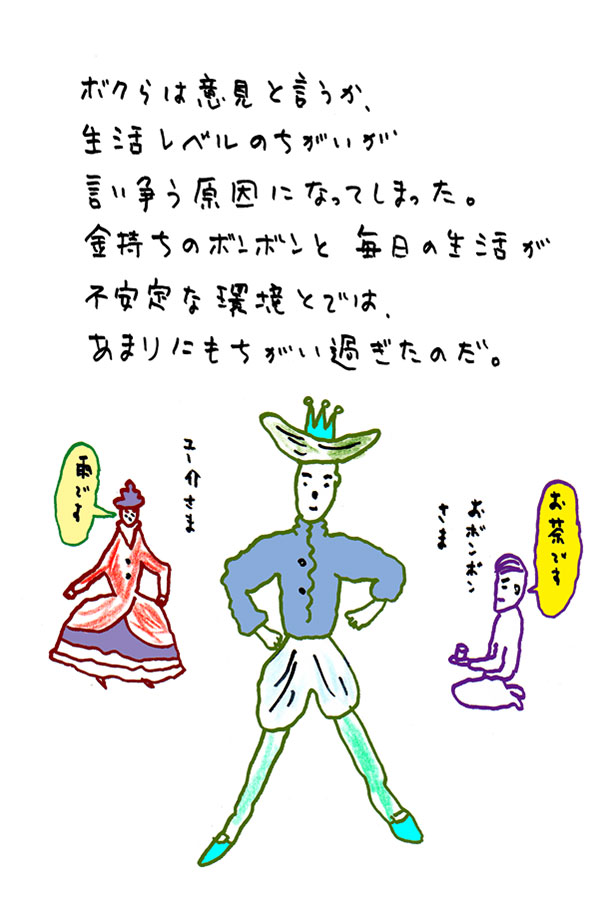 ボクらは意見と言うか、
生活レベルのちがいが
言い争う原因になってしまった。
金持ちのボンボンと 毎日の生活が
不安定な環境とでは、
あまりにもちがい過ぎたのだ。
雨です
ユー介さま
おボンボン
さま
お茶です